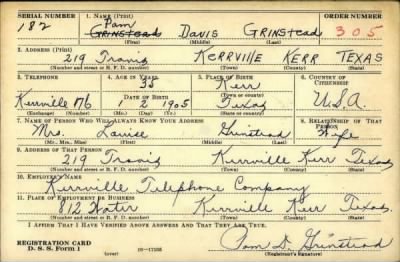 SERIAL NUMBER 1. NAME (Print) ORDER NUMBER
182 Pam
GRINSTEAD DAVIS GRINSTEAD 305
(First) (Middle) (Last)
2. ADDRESS (Print)
219 Travis KERRVILLE KERR TEXAS
(Number and street or R. F. D. number) (Town) (County) (State)
3. TELEPHONE 4. AGE IN YEARS 5. PLACE OF BIRTH 6. COUNTRY OF CITIZENSHIP
35 Kerr
Kerrville 176 DATE OF BIRTH (Town or county)
1 2 1905 Texas U.S.A.
(Exchange) (Number) (Mo.) (Day) (Yr.) (State or country)
7. NAME OF PERSON WHO WILL ALWAYS KNOW YOUR ADDRESS 8. RELATIONSHIP OF THAT PERSON
Mrs. Louise Grinstead Wife
(Mr., Mrs., Miss) (First) (Middle) (Last)
9. ADDRESS OF THAT PERSON
219 Travis Kerrville Kerr Texas
(Number and street or R. F. D. number) (Town) (County) (State)
10. EMPLOYER'S NAME
Kerrville Telephone Company
11. PLACE OF EMPLOYMENT OR BUSINESS
812 Water Kerrville Kerr Texas
(Number and street or R. F. D. number) (Town) (County) (State)
I AFFIRM THAT I HAVE VERIFIED ABOVE ANSWERS AND THAT THEY ARE TRUE.
REGISTRATION CARD
D. S. S. Form 1 (over) Pam D. Grinstead
(Registrant's signature)